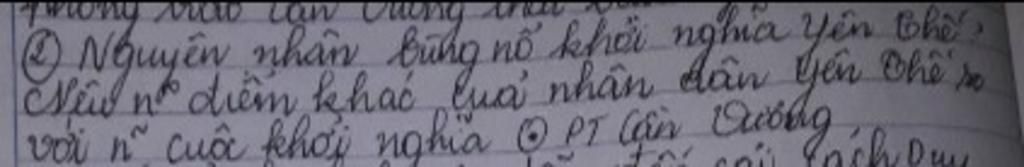 phong trào Cần Vương
② Nguyên nhân bùng nổ khởi nghĩa Yên Thế?
Nêu n~ điểm khác của nhân dân Yên Thế so
với n~ cuộc khởi nghĩa ⊙ PT Cần Vương